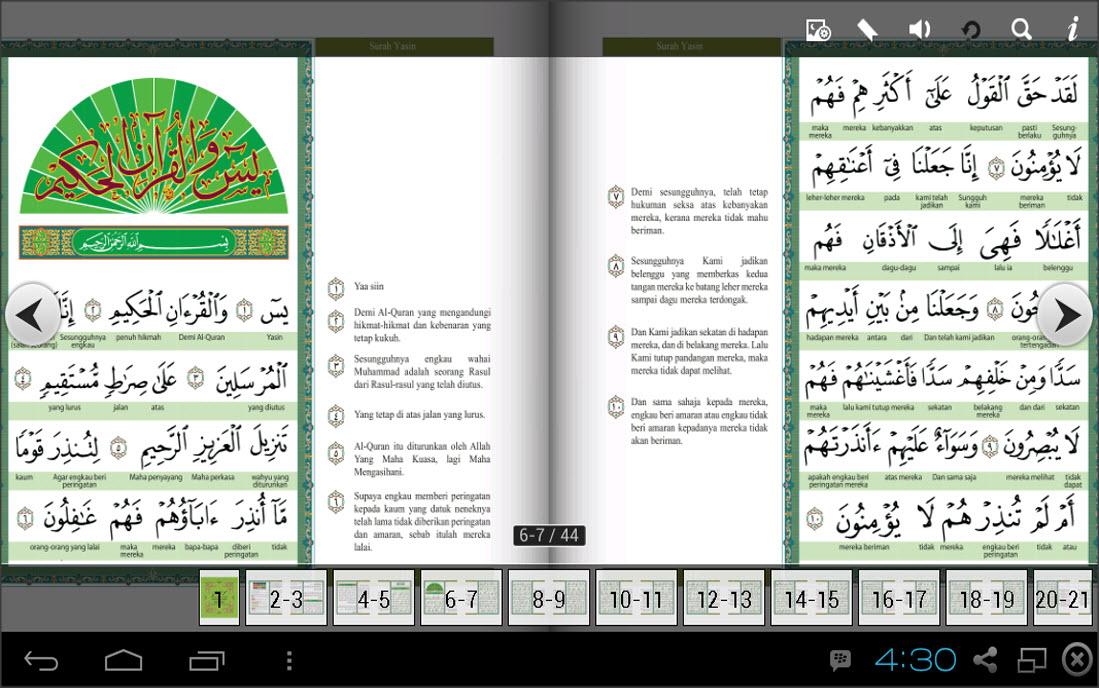 Surah Yasin
يسٓ وَالْقُرْآنِ الْحَكِيْمِ
بِسْمِ اللَّهِ الرَّحْمَنِ الرَّحِيمِ
يسٓ ١ وَالْقُرْءَانِ الْحَكِيمِ ٢
Yasin Demi Al-Quran penuh hikmah Sesungguhnya engkau
الْمُرْسَلِينَ ٣ عَلَىٰ صِرَٰطٍ مُّسْتَقِيمٍ ٤
yang diutus atas jalan yang lurus
تَنزِيلَ الْعَزِيزِ الرَّحِيمِ ٥ لِتُنذِرَ قَوْمًا
wahyu yang diturunkan Maha perkasa Maha penyayang Agar engkau beri peringatan kaum
مَّآ أُنذِرَ ءَابَآؤُهُمْ فَهُمْ غَٰفِلُونَ ٦
tidak diberi peringatan bapa-bapa mereka maka mereka orang-orang yang lalai
١ Yaa siin
٢ Demi Al-Quran yang mengandungi
hikmat-hikmat dan kebenaran yang
tetap kukuh.
٣ Sesungguhnya engkau wahai
Muhammad adalah seorang Rasul
dari Rasul-rasul yang telah diutus.
٤ Yang tetap di atas jalan yang lurus.
٥ Al-Quran itu diturunkan oleh Allah
Yang Maha Kuasa, lagi Maha
Mengasihani.
٦ Supaya engkau memberi peringatan
kepada kaum yang datuk neneknya
telah lama tidak diberikan peringatan
dan amaran, sebab itulah mereka
lalai.
Surah Yasin
٧ Demi sesungguhnya, telah tetap
hukuman seksa atas kebanyakan
mereka, kerana mereka tidak mahu
beriman.
٨ Sesungguhnya Kami jadikan
belenggu yang memberkas kedua
tangan mereka ke batang leher mereka
sampai dagu mereka terdongak.
٩ Dan Kami jadikan sekatan di hadapan
mereka, dan di belakang mereka. Lalu
Kami tutup pandangan mereka, maka
mereka tidak dapat melihat.
١٠ Dan sama sahaja kepada mereka,
engkau beri amaran atau engkau tidak
beri amaran kepadanya mereka tidak
akan beriman.
لَقَدْ حَقَّ الْقَوْلُ عَلَىٰٓ أَكْثَرِهِمْ فَهُمْ
Sesungguhnya pasti berlaku keputusan atas kebanyakkan mereka maka mereka
لَا يُؤْمِنُونَ ٧ إِنَّا جَعَلْنَا فِىٓ أَعْنَٰقِهِمْ
tidak mereka beriman Sungguh kami kami telah jadikan pada leher-leher mereka
أَغْلَٰلًا فَهِىَ إِلَى الْأَذْقَانِ فَهُم
belenggu lalu ia sampai dagu-dagu maka mereka
٨ وَجَعَلْنَا مِنۢ بَيْنِ أَيْدِيهِمْ
tertengadah Dan telah kami jadikan dari antara hadapan mereka
سَدًّا وَمِنْ خَلْفِهِمْ سَدًّا فَأَغْشَيْنَٰهُمْ فَهُمْ
sekatan dan dari belakang mereka sekatan lalu kami tutup mereka maka mereka
لَا يُبْصِرُونَ ٩ وَسَوَآءٌ عَلَيْهِمْ ءَأَنذَرْتَهُمْ
tidak dapat mereka melihat Dan sama saja atas mereka apakah engkau beri peringatan mereka
أَمْ لَمْ تُنذِرْهُمْ لَا يُؤْمِنُونَ ١٠
atau tidak engkau beri peringatan mereka tidak mereka beriman
6-7 / 44
1 2-3 4-5 6-7 8-9 10-11 12-13 14-15 16-17 18-19 20-21
4:30